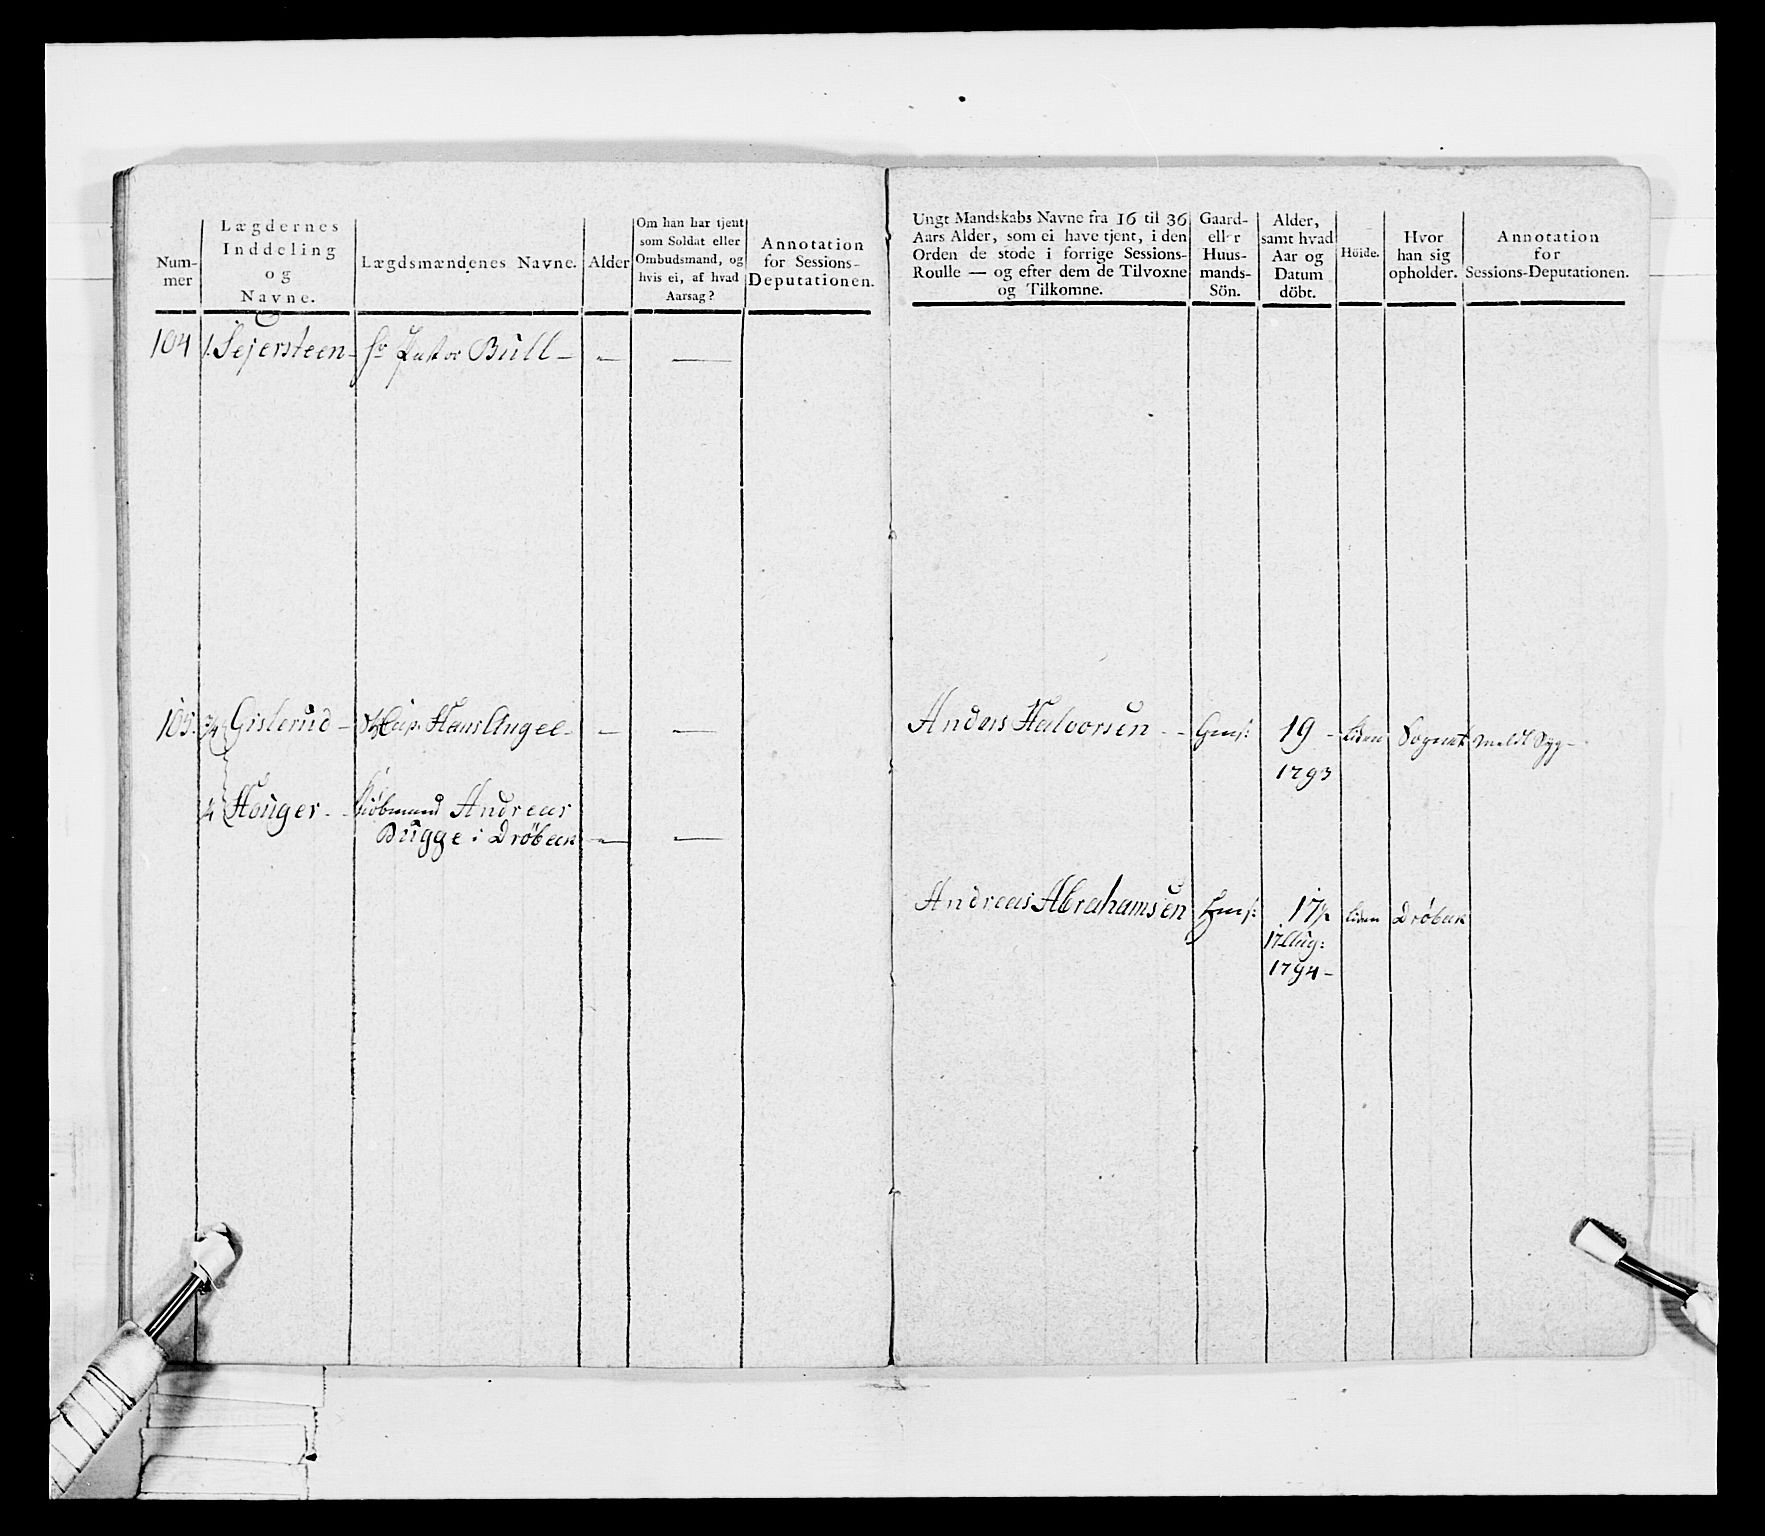 Num-
mer
Lægdernes
Inddeling
og
Navne.
Lægdsmændenes Navne.
Alder
Om han har tjent
som Soldat eller
Ombudsmand, og
hvis ei, af hvad
Aarsag?
Annotation
for Sessions-
Deputationen.
104 1. Sejersteen - Hr Pastor Bull - - -
105. 3/4 Gislerud - Hans Angel - - -
1/4 Houger - Kiöbmand Andreas
Bugge i Dröbak - -
Ungt Mandskabs Navne fra 16 til 36
Aars Alder, som ei have tjent, i den
Orden de stode i forrige Sessions-
Roulle — og efter dem de Tilvoxne
og Tilkomne.
Gaard-
eller
Huus-
mands-
Sön.
Alder,
samt hvad
Aar og
Datum
döbt.
Höide.
Hvor
han sig
opholder.
Annotation
for
Sessions-Deputationen.
Anders Halvorsen - Hms: 19 - liden Sognet meldt Syg -
1793
Andreas Abrahamsen Hms: 17 liden Dröbak
17 Aug:
1794 -